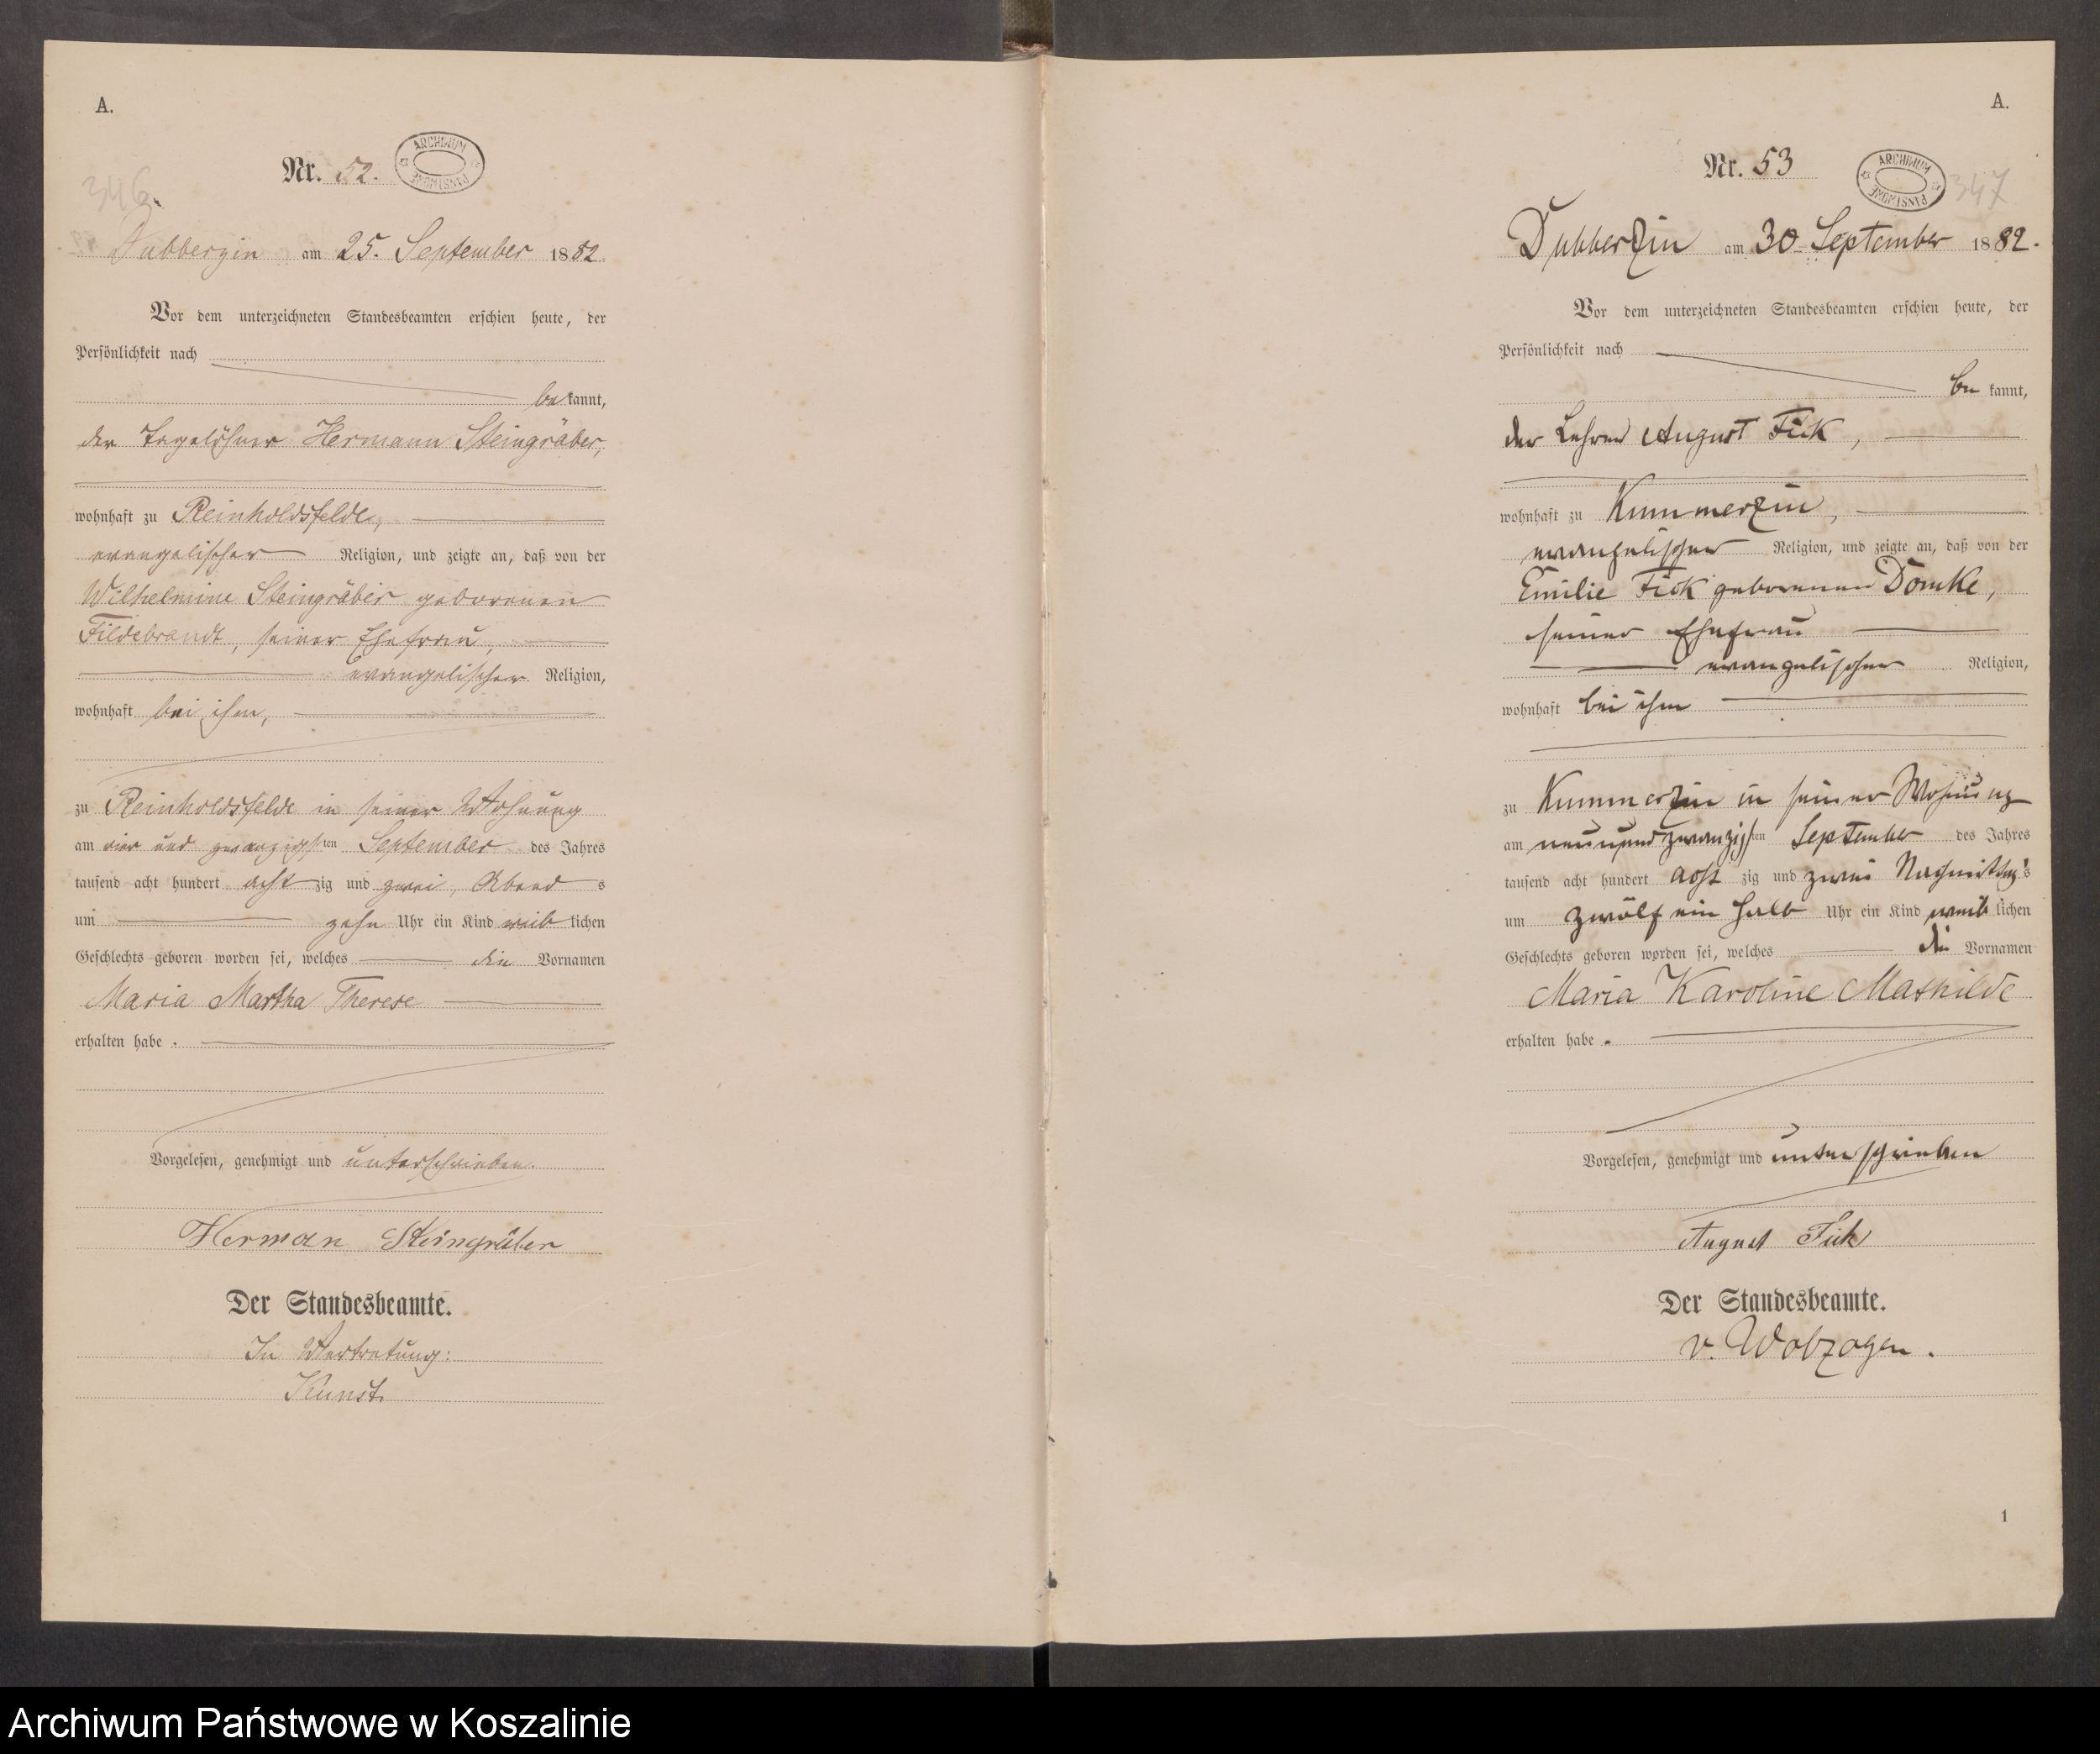 A.
Nr. 52.
ARCHIWUM PAŃSTWOWE
346.
Dubberzin am 25. September 1882.
Vor dem unterzeichneten Standesbeamten erschien heute, der
Persönlichkeit nach
bekannt,
der Tagelöhner Hermann Steingräber,
wohnhaft zu Reinholdsfelde,
evangelischer Religion, und zeigte an, daß von der
Wilhelmine Steingräber geborenen
Fildebrandt, seiner Ehefrau,
evangelischer Religion,
wohnhaft bei ihm,
zu Reinholdsfelde in seiner Wohnung
am vier und zwanzigsten September des Jahres
tausend acht hundert achtzig und zwei, Abends
um zehn Uhr ein Kind weiblichen
Geschlechts geboren worden sei, welches die Vornamen
Maria Martha Therese
erhalten habe.
Vorgelesen, genehmigt und unterschrieben.
Herman Steingräber
Der Standesbeamte.
In Vertretung:
Kunst.
A.
Nr. 53
ARCHIWUM PAŃSTWOWE
347
Dubberzin am 30. September 1882.
Vor dem unterzeichneten Standesbeamten erschien heute, der
Persönlichkeit nach
bekannt,
der Lehrer August Fick,
wohnhaft zu Kummerzin,
evangelischer Religion, und zeigte an, daß von der
Emilie Fick geborenen Domke,
seiner Ehefrau
evangelischer Religion,
wohnhaft bei ihm
zu Kummerzin in seiner Wohnung
am neunundzwanzigsten September des Jahres
tausend acht hundert achtzig und zwei Nachmittags
um zwölf ein halb Uhr ein Kind weiblichen
Geschlechts geboren worden sei, welches die Vornamen
Maria Karoline Mathilde
erhalten habe.
Vorgelesen, genehmigt und unterschrieben
August Fick
Der Standesbeamte.
v. Wobzogen.
1
Archiwum Państwowe w Koszalinie